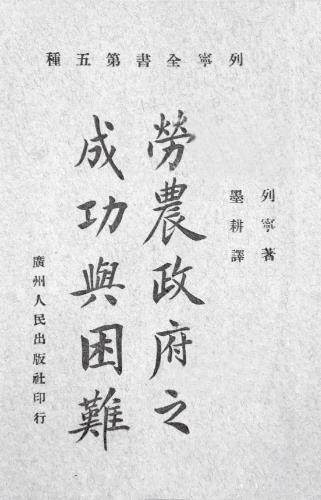 列寧全書第五種
列寧著
墨耕譯
勞農政府之
成功與困難
廣州人民出版社印行